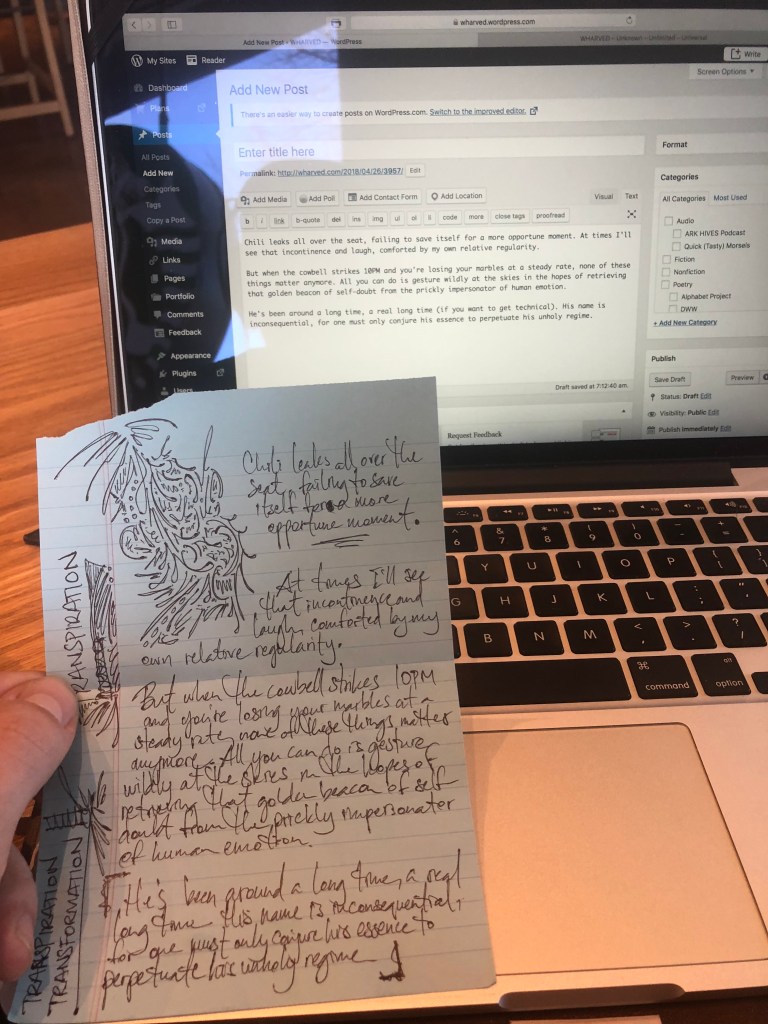 wharved.wordpress.com
Add New Post ‹ WHARVED — WordPress
WHARVED – Unknown – Unlimited – Universe
My Sites
Reader
Write
Dashboard
Plans
Posts
All Posts
Add New
Categories
Tags
Copy a Post
Media
Links
Pages
Portfolio
Comments
Feedback
Appearance
Plugins
Users
Screen Options
Add New Post
There's an easier way to create posts on WordPress.com. Switch to the improved editor.
Enter title here
Permalink: http://wharved.com/2018/04/26/3957/ Edit
Add Media
Add Poll
Add Contact Form
Add Location
Visual
Text
b i link b-quote del ins img ul ol li code more close tags proofread
Chili leaks all over the seat, failing to save itself for a more opportune moment. At times I'll
see that incontinence and laugh, comforted by my own relative regularity.
But when the cowbell strikes 10PM and you're losing your marbles at a steady rate, none of these
things matter anymore. All you can do is gesture wildly at the skies in the hopes of retrieving
that golden beacon of self-doubt from the prickly impersonator of human emotion.
He's been around a long time, a real long time (if you want to get technical). His name is
inconsequential, for one must only conjure his essence to perpetuate his unholy regime.
Draft saved at 7:12:40 am.
Request Feedback
Format
Categories
All Categories Most Used
Audio
ARK HIVES Podcast
Quick (Tasty) Morsels
Fiction
Nonfiction
Poetry
Alphabet Project
DWW
+ Add New Category
Publish
Save Draft
Preview
Status: Draft Edit
Visibility: Public Edit
Publish immediately Edit
Chili leaks all over the
seat, failing to save
itself for a more
opportune moment.
At times I'll see
that incontinence and
laugh, comforted by my
own relative regularity.
But when the cowbell strikes 10PM
and you're losing your marbles at a
steady rate, none of these things matter
anymore. All you can do is gesture
wildly at the skies in the hopes of
retrieving that golden beacon of self
doubt from the prickly impersonator
of human emotion.
He's been around a long time, a real
long time. His name is inconsequential,
for one must only conjure his essence to
perpetuate his unholy regime
TRANSPIRATION
TRANSPIRATION
TRANSFORMATION
^ 6
& 7
* 8
( 9
) 0
- =
Y U I O P
G H J K L
B N M < , > . ? /
⌘ command
alt option